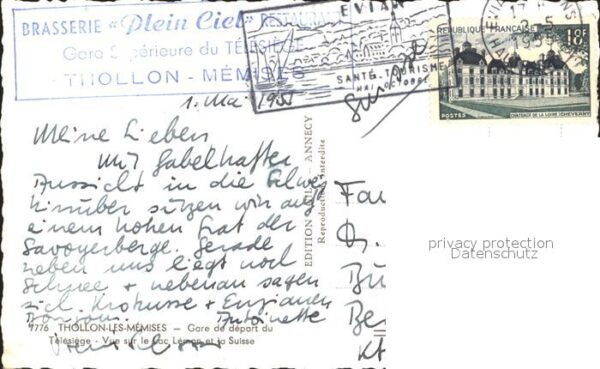 BRASSERIE "Plein Ciel" RESTAURANT
Gare Supérieure du TÉLÉSIÈGE
THOLLON - MÉMISES
EVIAN
SANTÉ - TOURISME
MAI OCTOBRE
RÉPUBLIQUE FRANÇAISE
18F
POSTES
CHATEAUX DE LA LOIRE (CHEVERNY)
1. Mai 1955
Meine Lieben
Mit fabelhafter
Aussicht in die Schweiz
hinüber sitzen wir auf
einem hohen Grat der
Savoyerberge. Gerade
neben uns liegt noch
Schnee + nebenan sagen
sich Krokusse + Enzianen
Bonjour. Antoinette
7776 THOLLON-LES-MÉMISES - Gare de départ du
Télésiège - Vue sur le Lac Léman et la Suisse
ANNECY
Reproduction interdite
privacy protection
Datenschutz